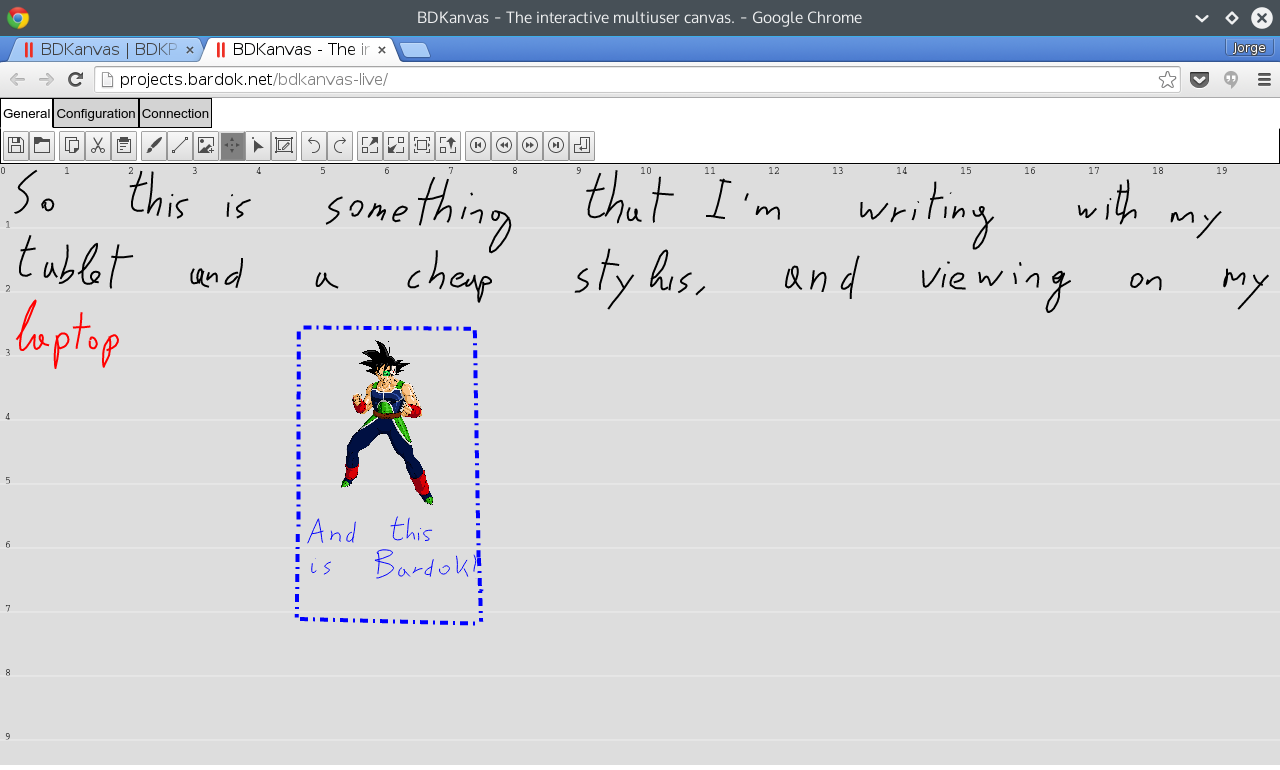 BDKanvas - The interactive multiuser canvas. - Google Chrome
BDKanvas | BDKP
BDKanvas - The in
Jorge
projects.bardok.net/bdkanvas-live/
General Configuration Connection
0 1 2 3 4 5 6 7 8 9 10 11 12 13 14 15 16 17 18 19
So this is something that I'm writing with my
1
tablet and a cheap stylus, and viewing on my
2
laptop
3
4
5
And this
6
is Bardok!
7
8
9